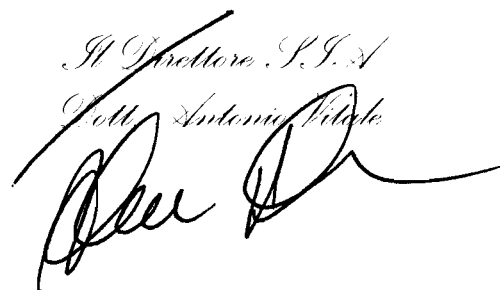 Il Direttore S.I.A
Dott. Antonio Vitale